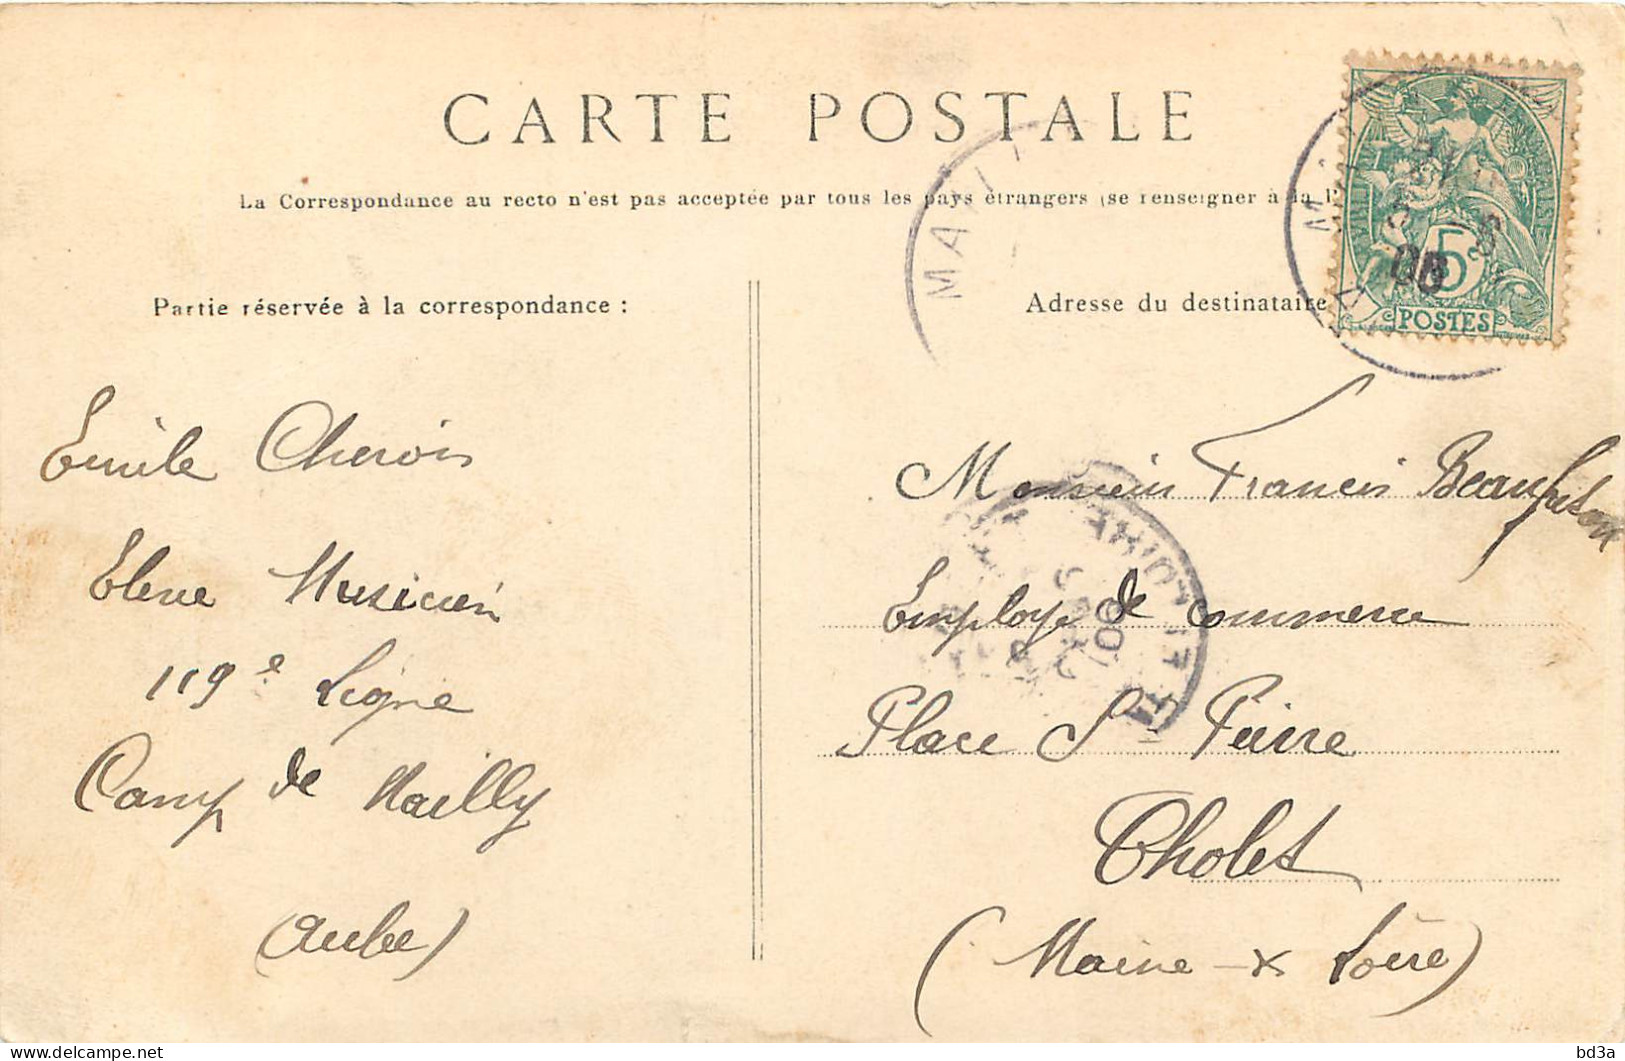 CARTE POSTALE
La Correspondance au recto n'est pas acceptée par tous les pays étrangers (se renseigner à la l'
Partie réservée à la correspondance :
Adresse du destinataire
5
POSTES
MAI
08
Emile
Eleve Musicien
119e Ligne
Camp de Mailly
(Aube)
Monsieur Francis
Employe de commerce
Place St Pierre
Cholet
(Maine - & Loire)
bd3a